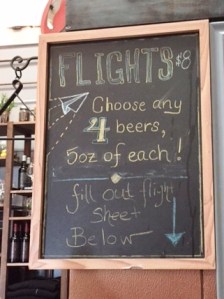 FLIGHTS $8
Choose any
4 beers,
5oz of each!
fill out flight
Sheet
Below